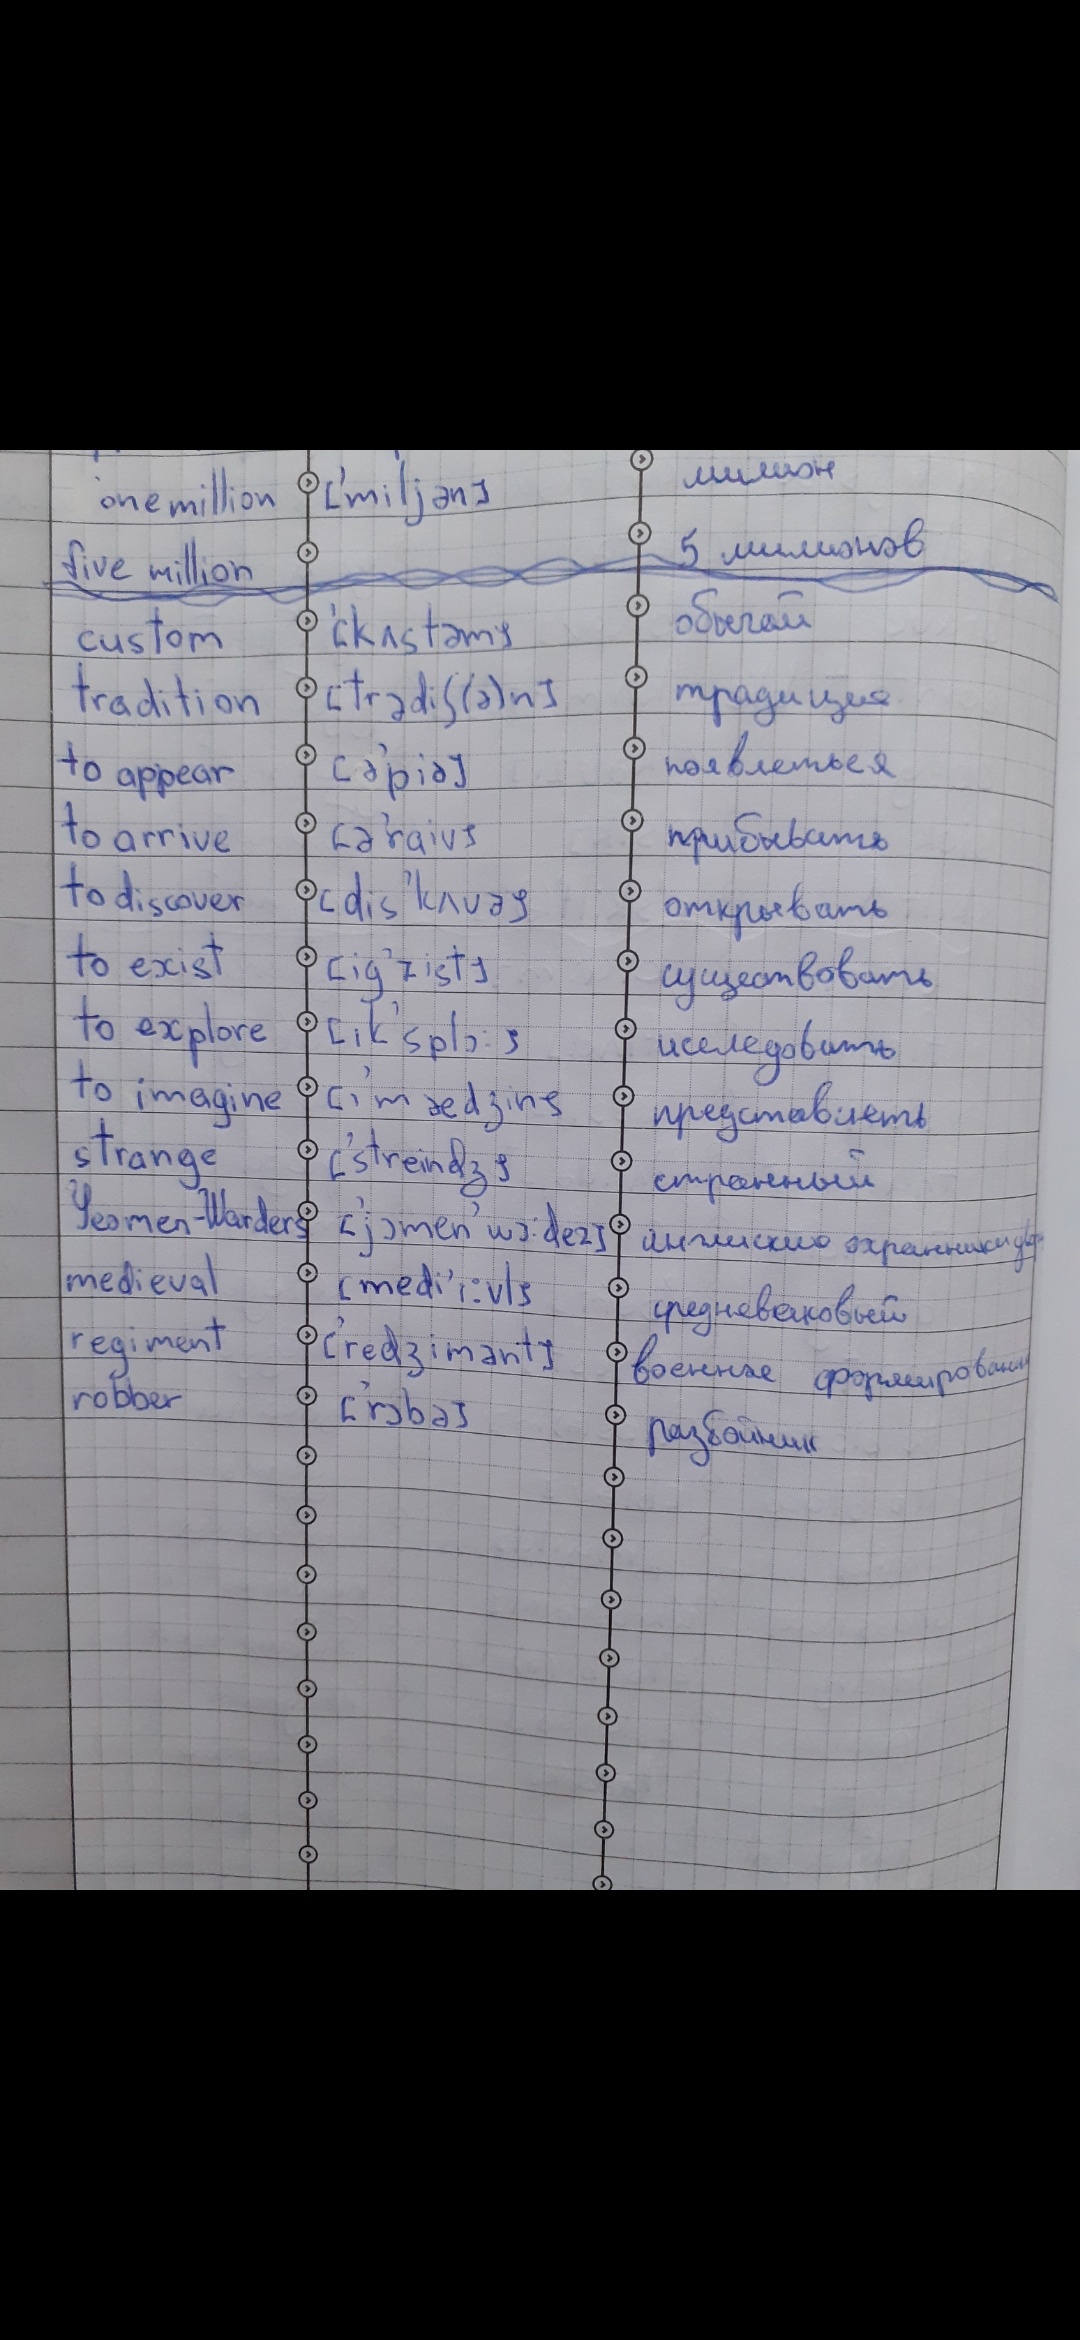 one million ['miljən] милион
five million 5 милионов
custom ['kʌstəm] обычай
tradition [trədiʃ(ə)n] традиция
to appear [ə'piə] появляться
to arrive [ə'raiv] прибывать
to discover [dis'kʌvə] открывать
to exist [ig'zist] существовать
to explore [ik'splɔ:] исследовать
to imagine [i'mædʒin] представлять
strange ['streindʒ] странный
Yeomen-Warders ['jɔmen'wɔ:dez] охранники
medieval [medi'i:vl] средневековый
regiment ['redʒimənt] военное формирование
robber ['rɔbə] разбойник